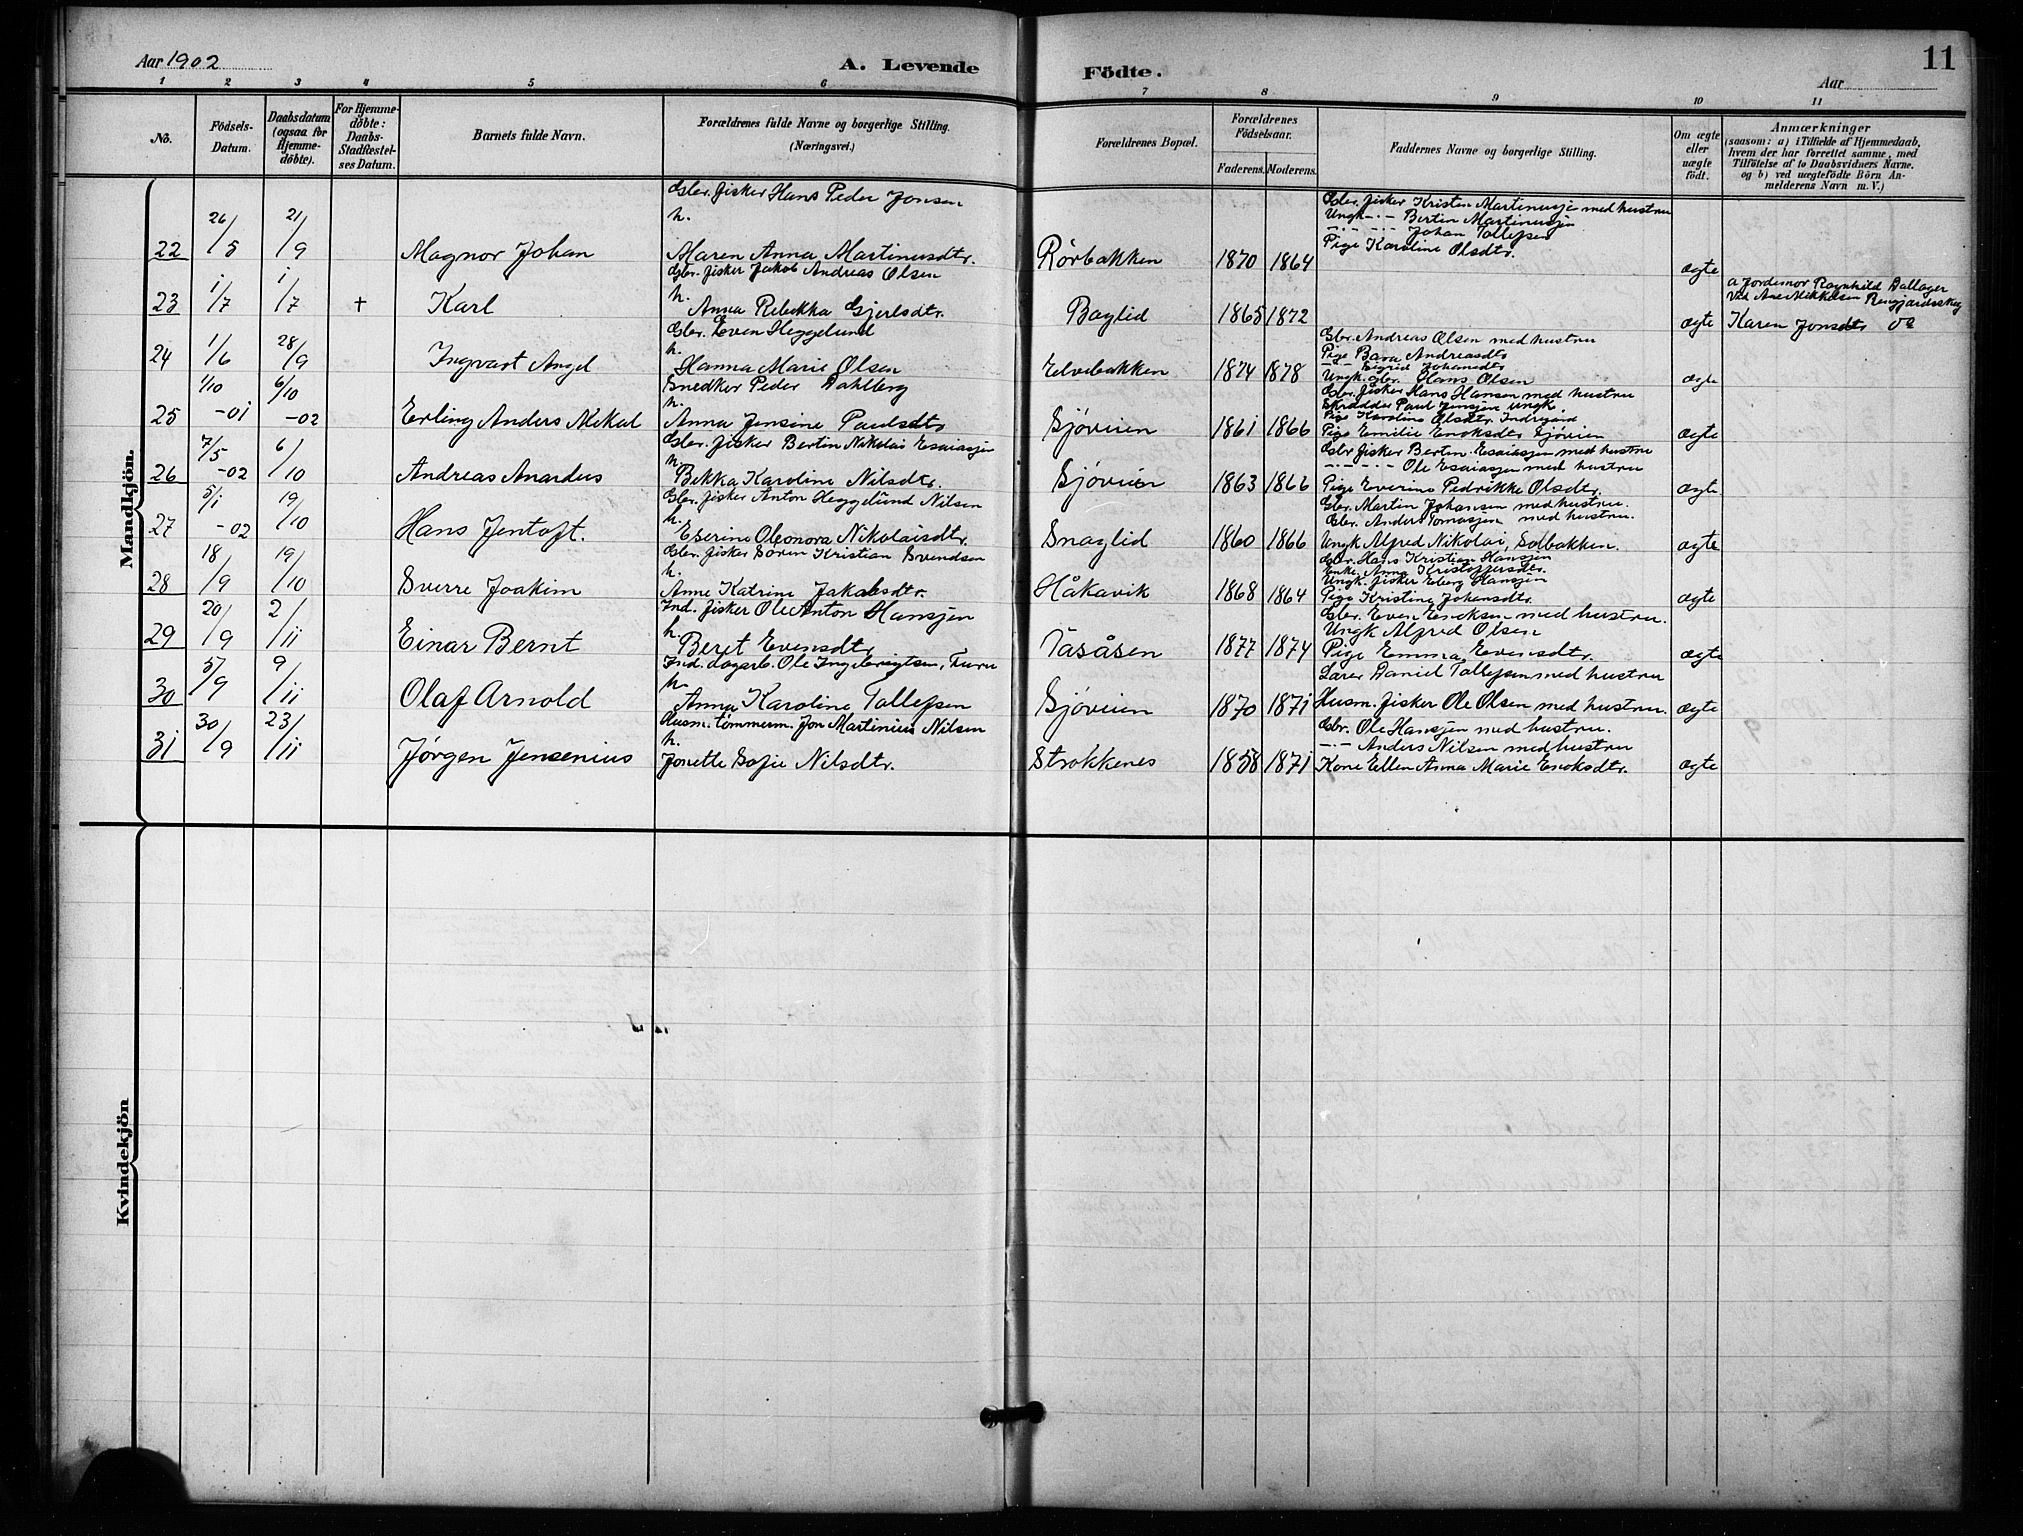 Aar 1902
A. Levende
Födte.
Aar
11
1 2 3 4 5 6 7 8 9 10 11
No.
Födsels-Datum.
Daabsdatum (ogsaa for Hjemme-döbte).
For Hjemme-döbte: Daabs-Stadfæstel-ses Datum.
Barnets fulde Navn.
Forældrenes fulde Navne og borgerlige Stilling.
(Næringsvei.)
Forældrenes Bopæl.
Forældrenes Födselsaar.
Faderens. Moderens.
Faddernes Navne og borgerlige Stilling.
Om ægte eller uægte födt.
Anmærkninger
(saasom: a) i Tilfælde af Hjemmedaab,
hvem der har forrettet samme, med
Tilföielse af to Daabsvidners Navne.
og b) ved uægtefödte Börn An-
melderens Navn m. V.)
Mandkjön.
22 26/5 21/9 Magnor Johan
Gbr. fisker Hans Peder Jonsen
h.
Maren Anna Martinusdtr.
Rørbakken 1870 1864
Gbr. fisker Kristen Martinussen med hustru
Ungk -"- Bertin Martinussen
-"- -"- Johan Tollefsen
Pige Karoline Olsdtr.
ægte
23 1/7 1/7 + Karl
Gbr. fisker Jakob Andreas Olsen
h.
Anna Rebekka Gjertsdtr.
Baglid 1865 1872
ægte
a Jordemor Ragnhild Dallager
Karen Jonsdtr
24 1/6 28/9 Ingvart Angel
Gbr. Even Heggelund
h.
Hanna Marie Olsen
Elvebakken 1874 1878
Gbr. Andreas Olsen med hustru
Pige Bara Andreasdtr
-"- Sigrid Johansdtr
Ungk. gbr. Hans Olsen
ægte
25 1/10 -01 6/10 -02 Erling Anders Mikal
Snedker Peder Dahlberg
h.
Anna Jensine Paulsdtr
Sjøveien 1861 1866
Gbr. fisker Hans Hansen med hustru
Skrædder Paul Jensen ungk.
Pige Karoline Olsdtr Indregård
Pige Emilie Enoksdtr Sjøvien
ægte
26 7/5 -02 6/10 Andreas Anardus
Gbr. fisker Bertin Nikolai Esaiassen
h.
Bekka Karoline Nilsdtr.
Sjøveien 1863 1866
Gbr fisker Bertin Esaiassen med hustru
-"- -"- Ole Esaiassen med hustru
Pige Everine Pedrikke Olsdtr.
ægte
27 5/1 -02 19/10 Hans Jentoft.
Gbr. fisker Anton Heggelund Nilsen
h.
Eserine Oleonora Nikolaisdtr.
Snaglid 1860 1866
Gbr. Martin Johansen med hustru.
Gbr. Anders Tomassen med hustru.
Ungk Alfred Nikolai, Solbakken.
ægte
28 18/9 19/10 Sverre Joakim
Gbr. fisker Sören Kristian Svendsen
h.
Anne Katrine Jakobsdtr.
Håkavik 1868 1864
Gbr. Hans Kristian Hanssen
Enke Anna Kristoffersdtr.
Ungk. fisker Eberg Hanssen
Pige Kristine Johansdtr.
ægte
29 20/9 2/11 Einar Bernt
Ind. fisker Ole Anton Hanssen
h.
Beret Evensdtr
Tåsåsen 1877 1874
Gbr. Even Enoksen med hustru.
Ungk Alfred Olsen
Pige Emma Evensdtr.
ægte
30 5/9 9/11 Olaf Arnold
Ind. dagarb. Ole Ingebrigtsen, Furu
h.
Anna Karoline Tollefsen
Sjøveien 1870 1871
Lærer Daniel Tollefsen med hustru
Husm. fisker Ole Olsen med hustru.
ægte
31 30/9 23/11 Jørgen Jensenius
Husm. tømmerm. Jon Martinius Nilsen
h.
Jonette Sofie Nilsdtr.
Strokkenes 1858 1871
Gbr. Ole Hanssen med hustru.
-"- Anders Nilsen med hustru
Kone Ellen Anna Marie Enoksdtr.
ægte
Kvindekjön